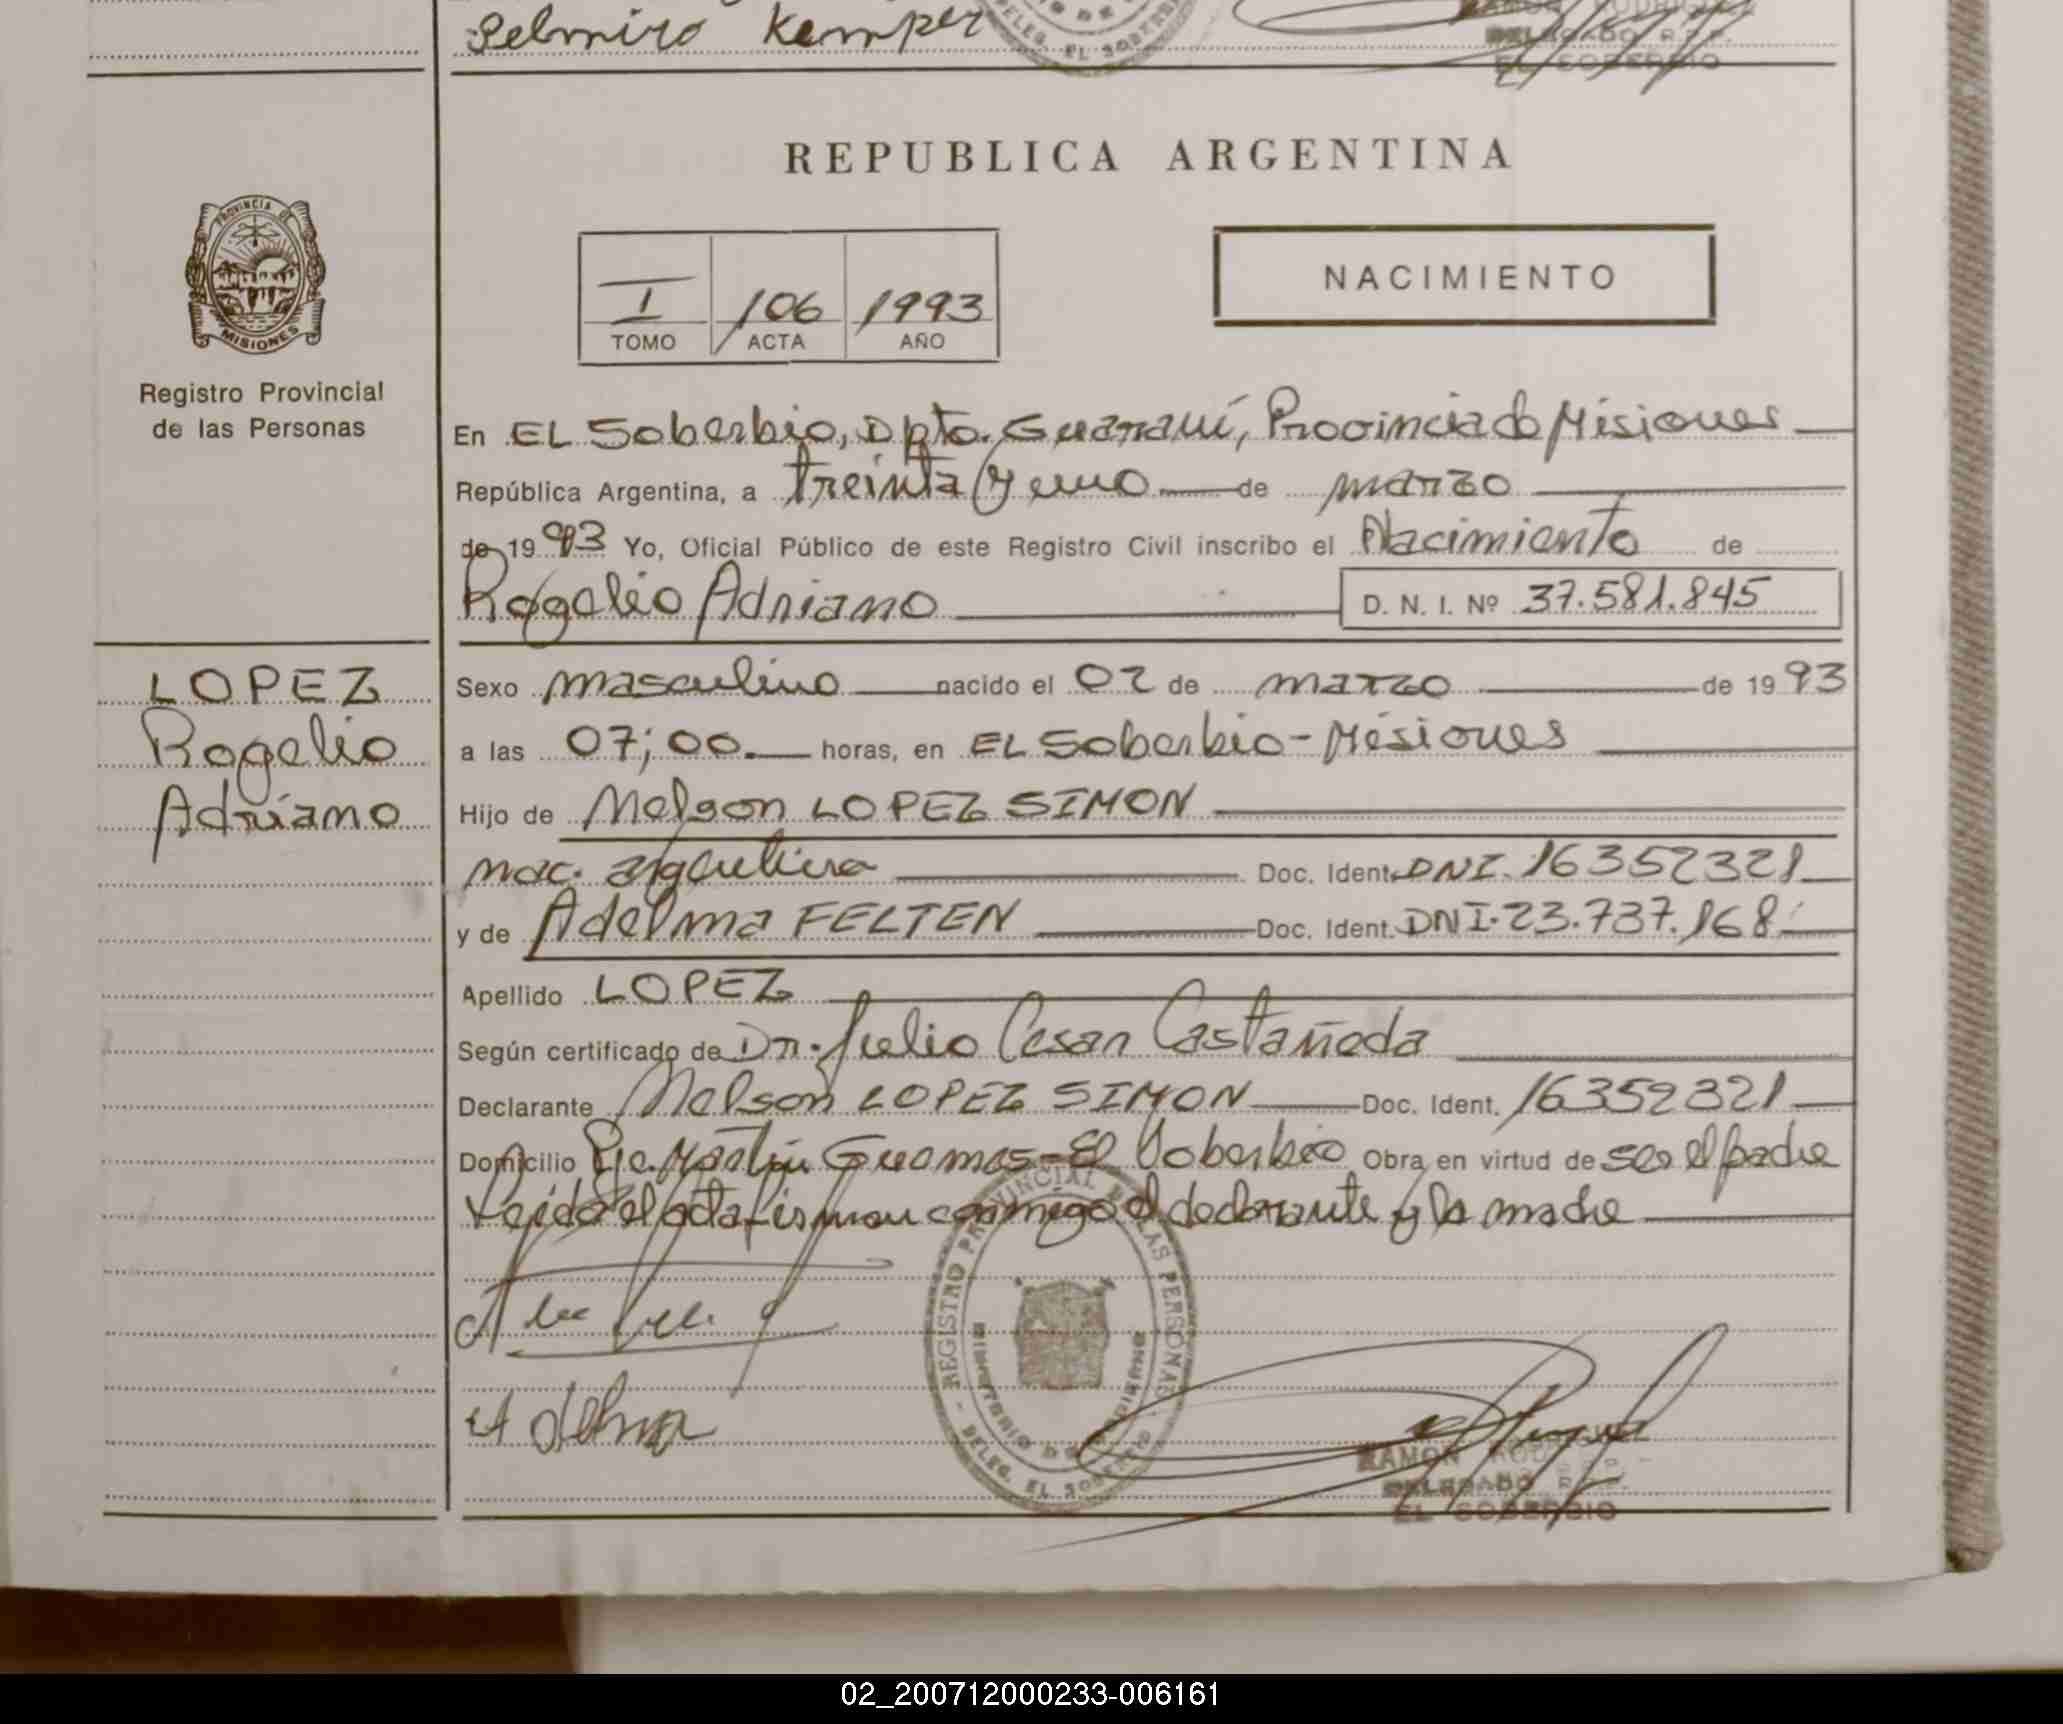 Selmiro Kemper
DELEG. EL SOBERBIO
RAMON RODRIGUEZ
DELEGADO R.P.P.
EL SOBERBIO
REPUBLICA ARGENTINA
PROVINCIA DE
MISIONES
NACIMIENTO
I 106 1993
TOMO ACTA AÑO
Registro Provincial
de las Personas
En EL Soberbio, Dpto. Guaraní, Provincia de Misiones
República Argentina, a treinta y uno de marzo
de 1993 Yo, Oficial Público de este Registro Civil inscribo el Nacimiento de
Rogelio Adriano D. N. I. Nº 37.581.845
LOPEZ
Rogelio
Adriano
Sexo masculino nacido el 02 de marzo de 1993
a las 07;00. horas, en EL Soberbio - Misiones
Hijo de Nelson LOPEZ SIMON
nac. argentina Doc. Ident. DNI. 16352321
y de Adelma FELTEN Doc. Ident. DNI. 23.737.168
Apellido LOPEZ
Según certificado de Dr. Julio Cesar Castañeda
Declarante Nelson LOPEZ SIMON Doc. Ident. 16352321
Domicilio Pje. Martín Guemes - El Soberbio Obra en virtud de ser el padre
Leida el acta firman conmigo el declarante y la madre
REGISTRO PROVINCIAL DE LAS PERSONAS
Adelma
DELEG. EL SOBERBIO
RAMON RODRIGUEZ
DELEGADO R.P.P.
EL SOBERBIO
02_200712000233-006161